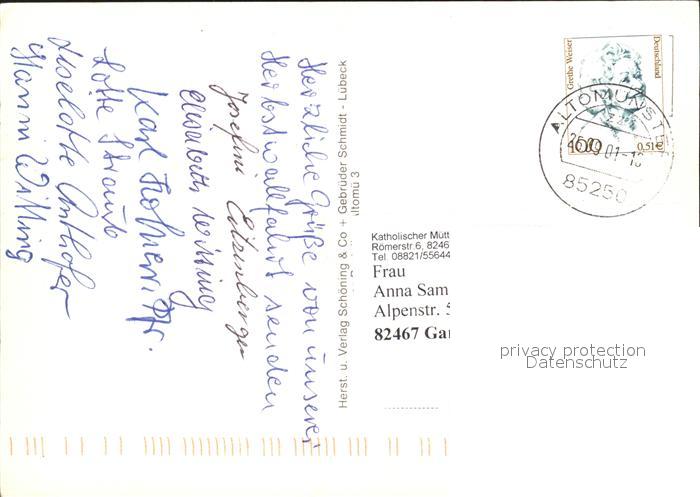 Herzliche Grüße von unserer
Herbstwallfahrt senden
Josefine
Elisabeth
Karl
Lotte Straub
Liselotte
Hanni Witting
Herst. u. Verlag Schöning & Co + Gebrüder Schmidt - Lübeck
Altomü 3
Grethe Weiser
Deutschland
100
0,51€
ALTOMÜNST
01-1
85250
Katholischer Mütt
Römerstr.6, 8246
Tel. 08821/55644
Frau
Anna Sam
Alpenstr. 5
82467 Gar
privacy protection
Datenschutz